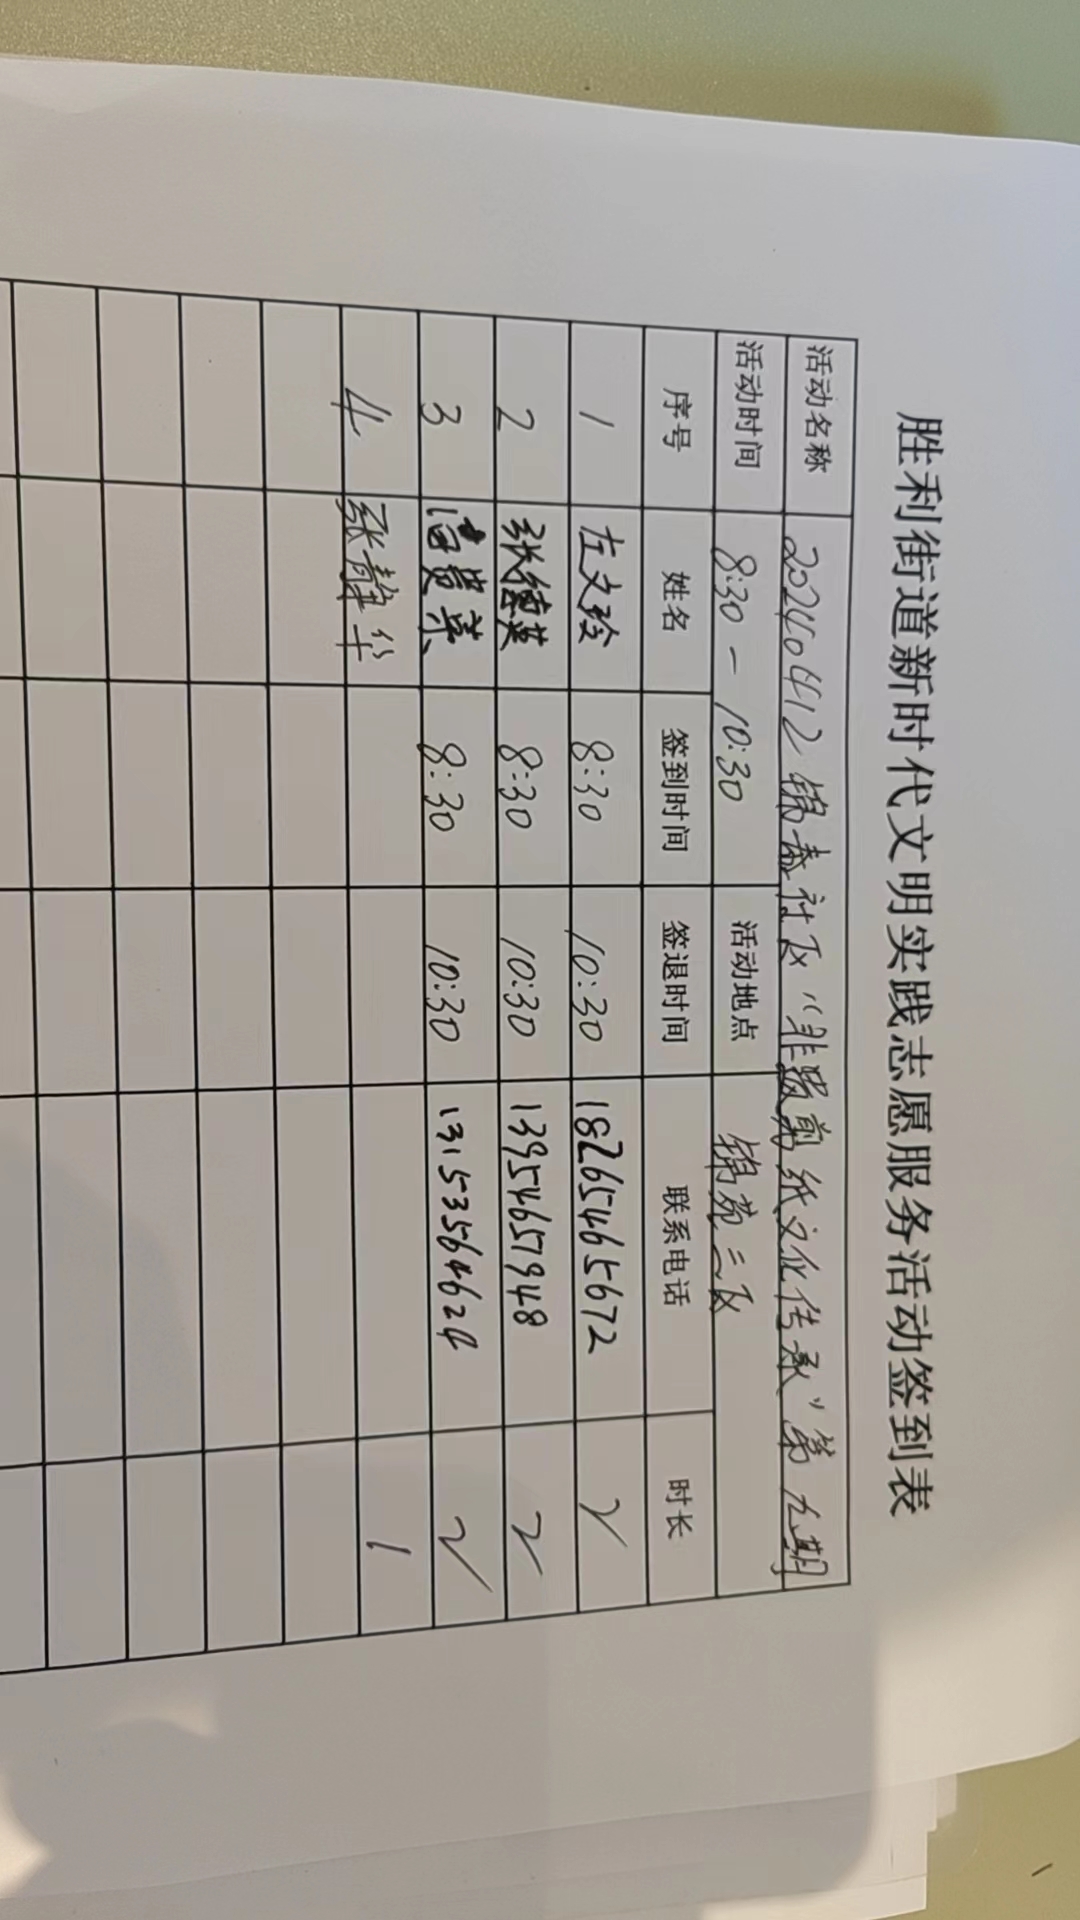 胜利街道新时代文明实践志愿服务活动签到表
活动名称 20240412锦春社区“非遗剪纸文化传承”第九期
活动时间 8:30－10:30 活动地点 锦苑二区
序号 姓名 签到时间 签退时间 联系电话 时长
1 左文玲 8:30 10:30 18265465672 2
2 张德英 8:30 10:30 13954657948 2
3 高贵荣 8:30 10:30 13153564624 2
4 张静华 1